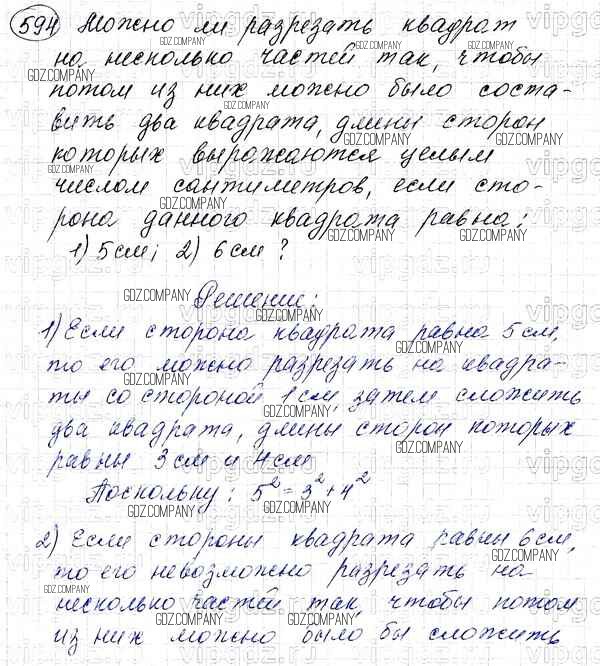 594 Можно ли разрезать квадрат
на несколько частей так, чтобы
потом из них можно было соста-
вить два квадрата, длины сторон
которых выражаются целым
числом сантиметров, если сто-
рона данного квадрата равна:
1) 5 см; 2) 6 см ?
Решение:
1) Если сторона квадрата равна 5 см,
то его можно разрезать на квадра-
ты со стороной 1 см, затем сложить
два квадрата, длины сторон которых
равны 3 см и 4 см
Поскольку: 5² = 3² + 4²
2) Если стороны квадрата равны 6 см,
то его невозможно разрезать на
несколько частей так, чтобы потом
из них можно было бы сложить